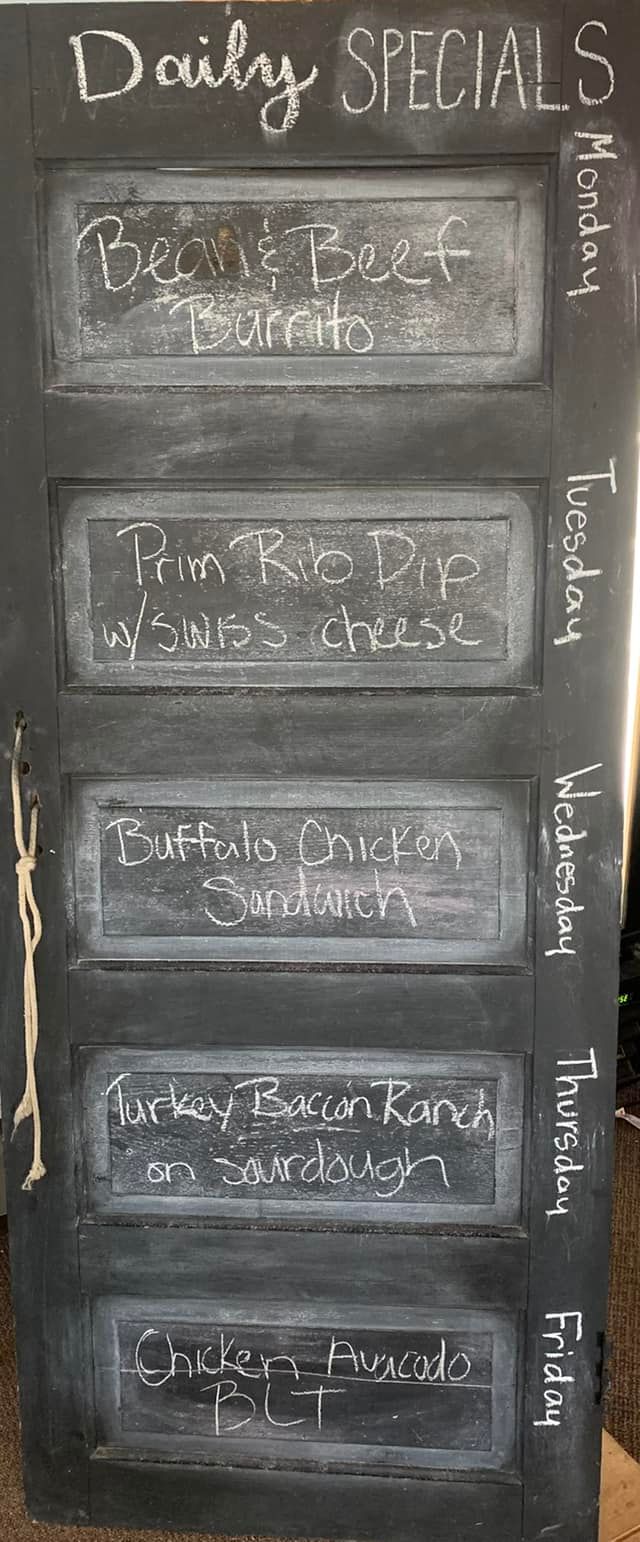 Daily SPECIALS
Monday
Bean & Beef
Burrito
Tuesday
Prim Rib Dip
w/ swiss cheese
Wednesday
Buffalo Chicken
Sandwich
Thursday
Turkey Baccon Ranch
on sourdough
Friday
Chicken Avacado
BLT